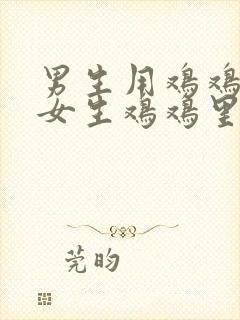 男生用鸡鸡
女生鸡鸡里
莞昀